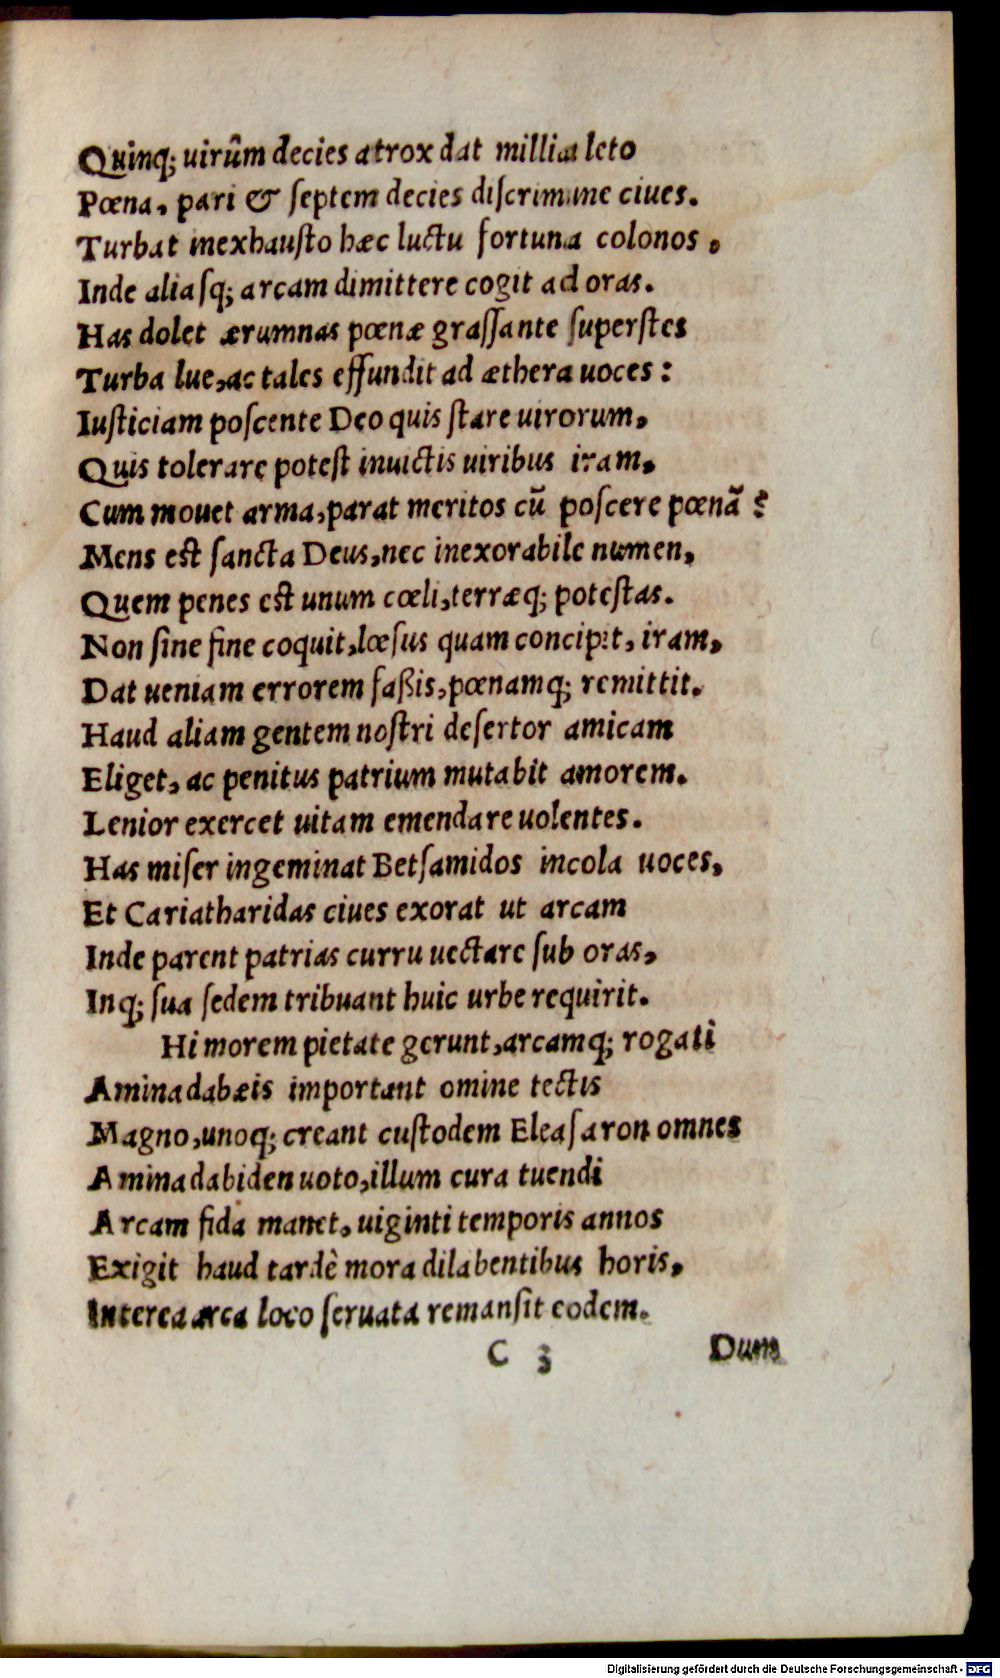 Quinq; uirûm decies atrox dat millia leto
Pœna, pari & ſeptem decies diſcrimine ciues.
Turbat inexhauſto hæc luctu fortuna colonos,
Inde aliasq; arcam dimittere cogit ad oras.
Has dolet ærumnas pœnæ graſſante ſuperſtes
Turba lue, ac tales effundit ad æthera uoces:
Iuſticiam poſcente Deo quis ſtare uirorum,
Quis tolerare poteſt inuictis uiribus iram,
Cum mouet arma, parat meritos cū poſcere pœnā?
Mens eſt ſancta Deus, nec inexorabile numen,
Quem penes eſt unum cœli, terræq; poteſtas.
Non ſine fine coquit, lœſus quam concipit, iram,
Dat ueniam errorem faßis, pœnamq; remittit.
Haud aliam gentem noſtri deſertor amicam
Eliget, ac penitus patrium mutabit amorem.
Lenior exercet uitam emendare uolentes.
Has miſer ingeminat Betſamidos incola uoces,
Et Cariatharidas ciues exorat ut arcam
Inde parent patrias curru uectare ſub oras,
Inq; ſua ſedem tribuant huic urbe requirit.
Hi morem pietate gerunt, arcamq; rogati
Aminadabæis important omine tectis
Magno, unoq; creant cuſtodem Eleaſaron omnes
Aminadabiden uoto, illum cura tuendi
Arcam fida manet, uiginti temporis annos
Exigit haud tardè mora dilabentibus horis,
Interea arca loco ſeruata remanſit eodem.
C 3 Dum
Digitalisierung gefördert durch die Deutsche Forschungsgemeinschaft - DFG